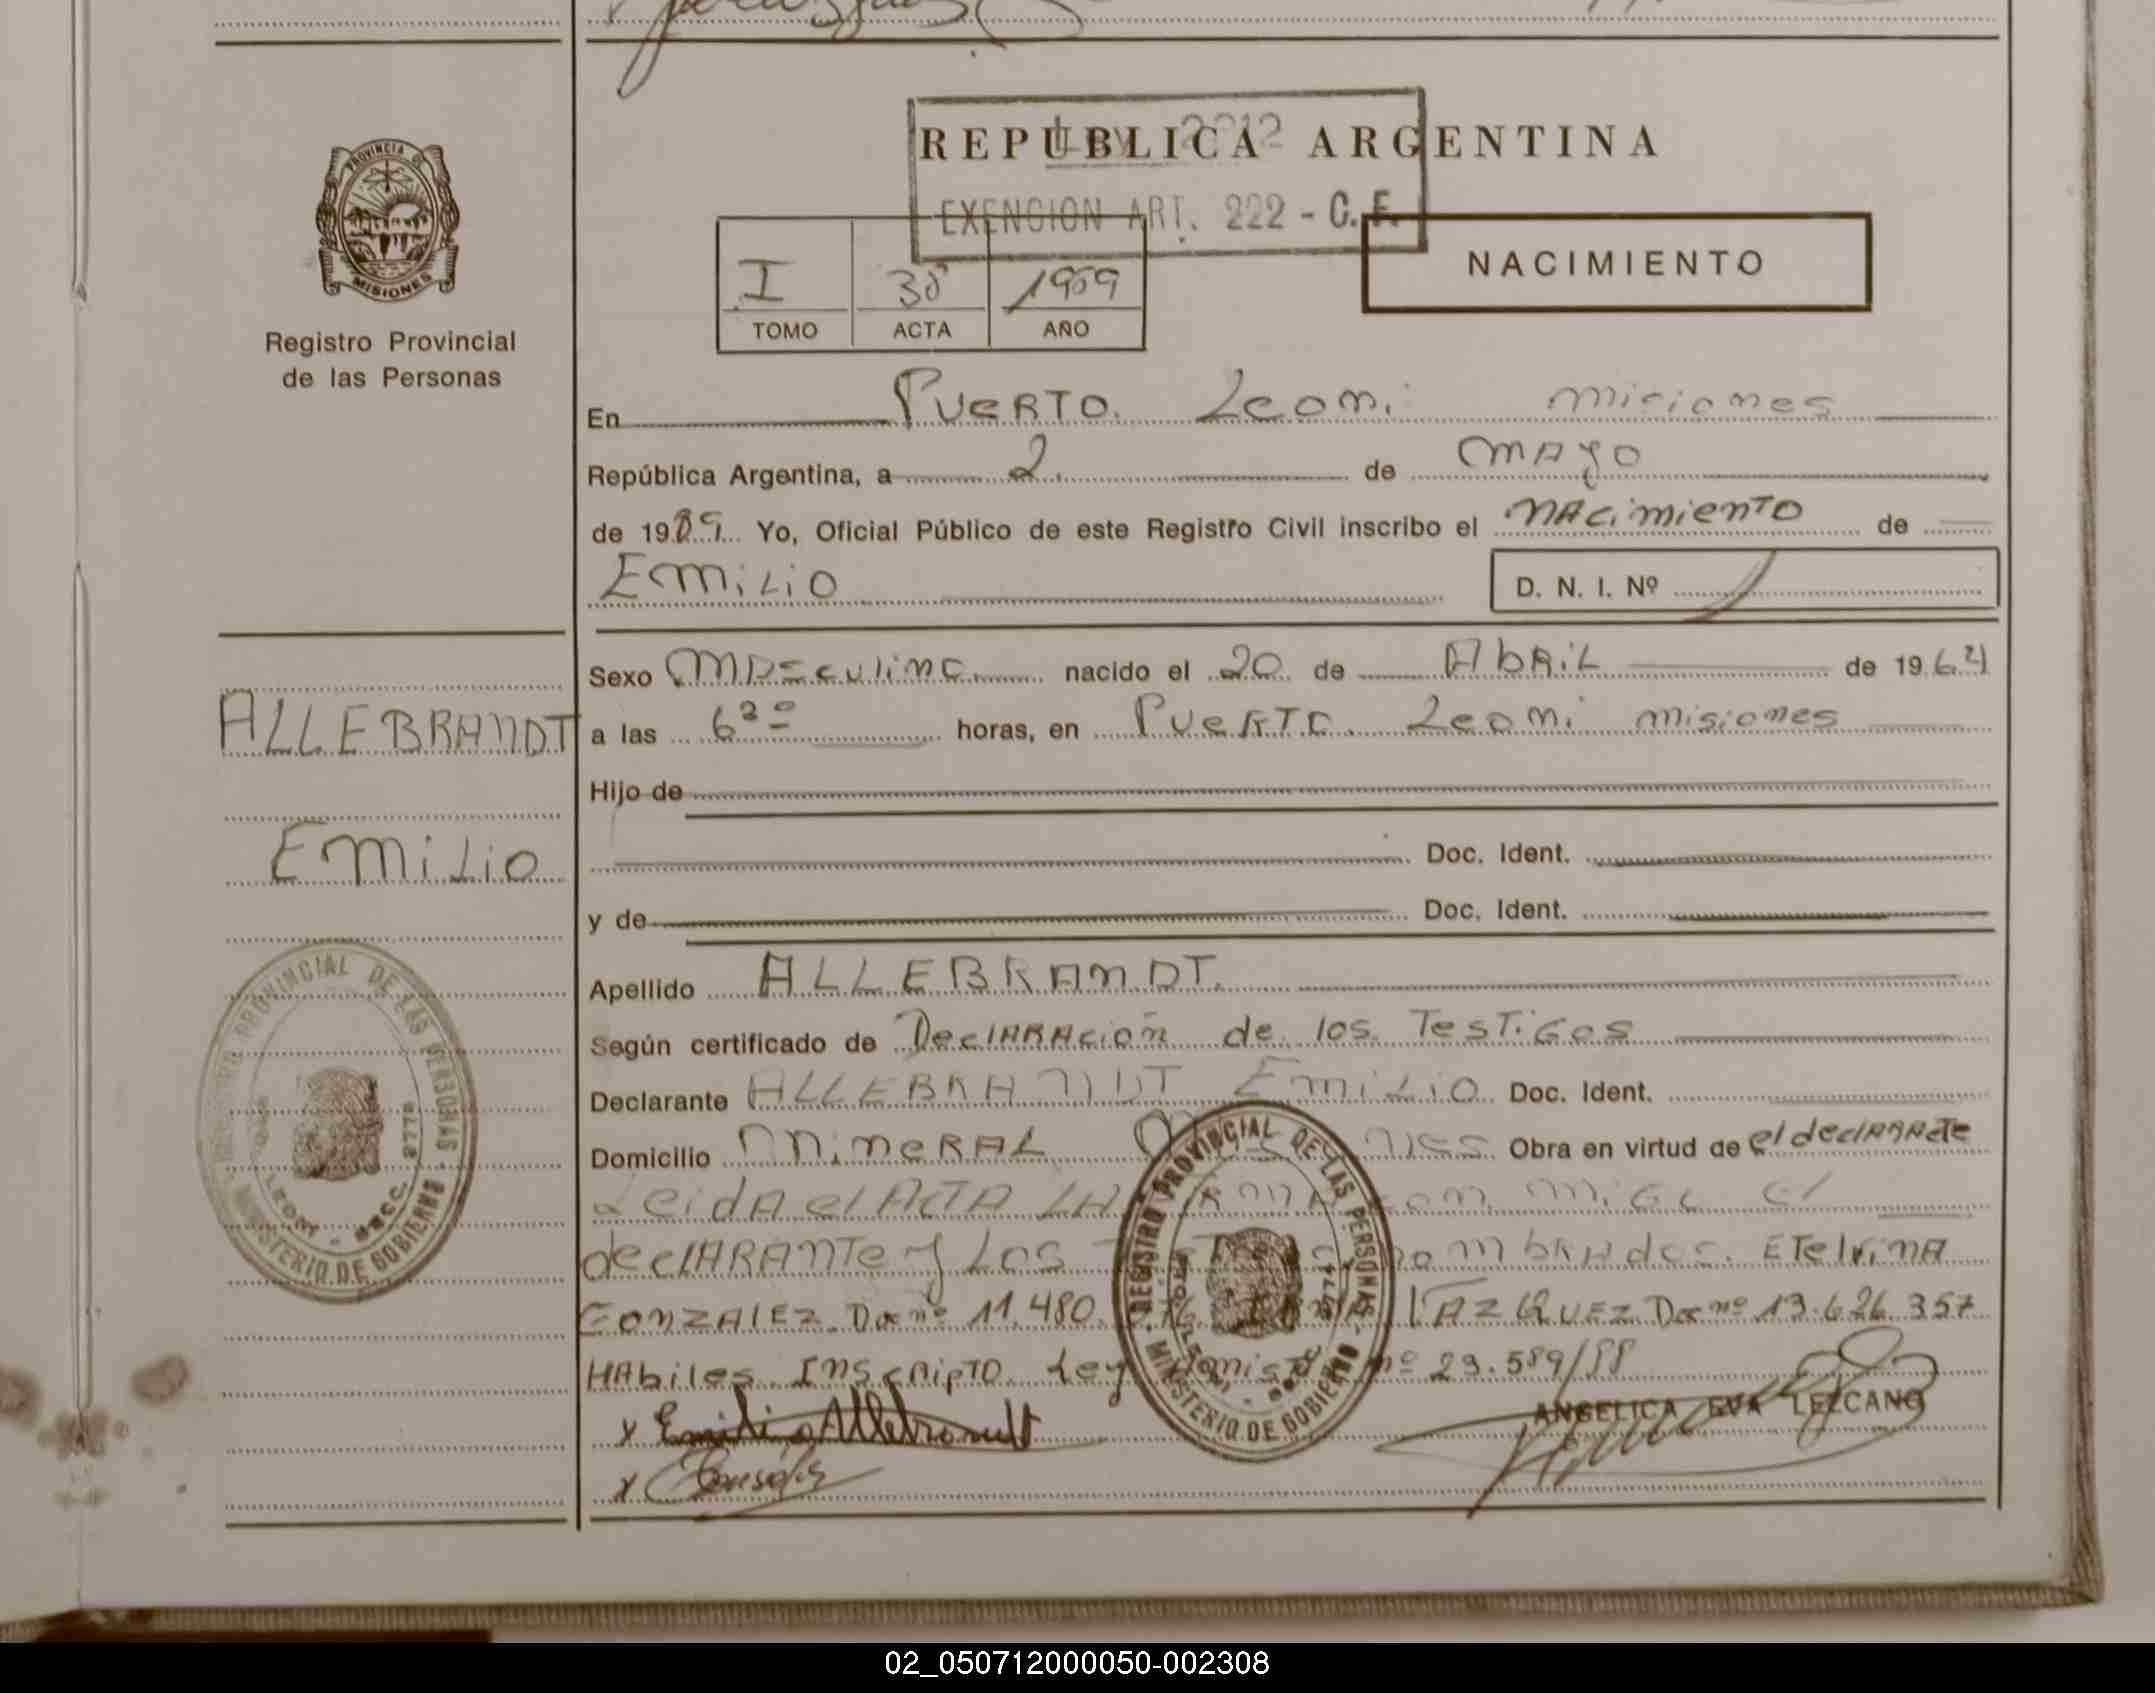 REPUBLICA ARGENTINA
EXENCION ART. 222 - C. F.
PROVINCIA DE
MISIONES
Registro Provincial
de las Personas
NACIMIENTO
I
TOMO ACTA AÑO
En Puerto Leoni Misiones
República Argentina, a 2 de Mayo
de 1989 Yo, Oficial Público de este Registro Civil inscribo el Nacimiento de
Emilio D. N. I. Nº
Sexo Masculino nacido el 20 de Abril de 1964
a las 6 30 horas, en Puerto Leoni Misiones
ALLEBRANDT
Hijo de
Emilio
Doc. Ident.
y de Doc. Ident.
Apellido ALLEBRANDT.
Según certificado de Declaración de los Testigos
Declarante ALLEBRANDT Emilio Doc. Ident.
Domicilio Mineral Obra en virtud de el declarate
Leida el Acta La con migo el
declarante y Los Etelvina
Gonzalez Doc nº 11.480. Vazquez Doc nº 13.626.357
Habiles Inscripto Ley nº 23.589/88
x Emilio Allebrandt
ANGELICA EVA LEZCANO
x
REGISTRO PROVINCIAL DE LAS PERSONAS
MINISTERIO DE GOBIERNO
REGISTRO PROVINCIAL DE LAS PERSONAS
MINISTERIO DE GOBIERNO
02_050712000050-002308